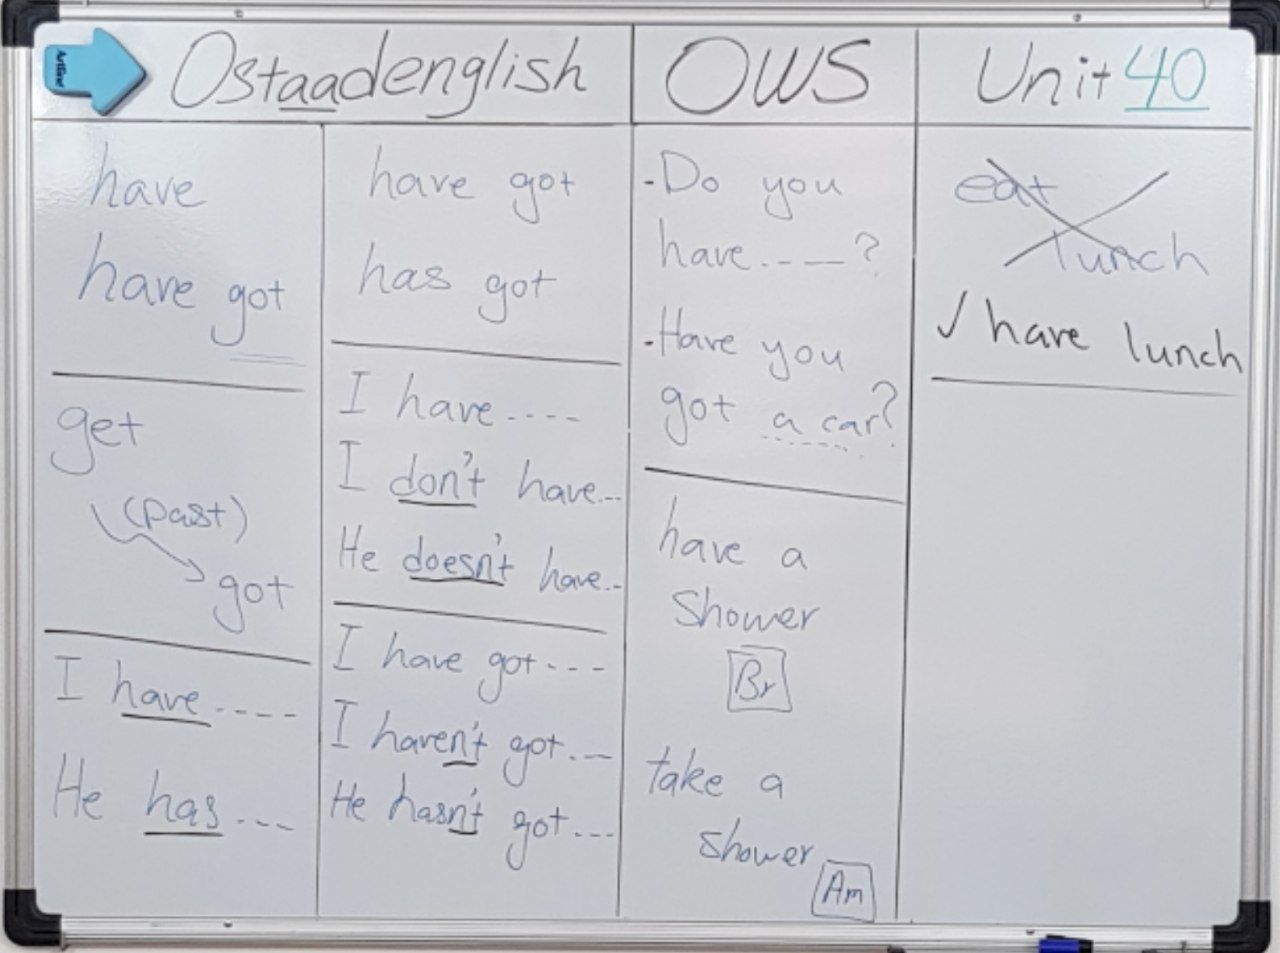 Artline
Ostaadenglish
OWS
Unit 40
have
have got
get
(past)
got
I have----
He has---
have got
has got
I have----
I don't have...
He doesn't have..
I have got---
I haven't got.--
He hasn't got...
-Do you
have.---?
-Have you
got a car?
have a
shower
Br
take a
shower
Am
eat
lunch
✓ have lunch